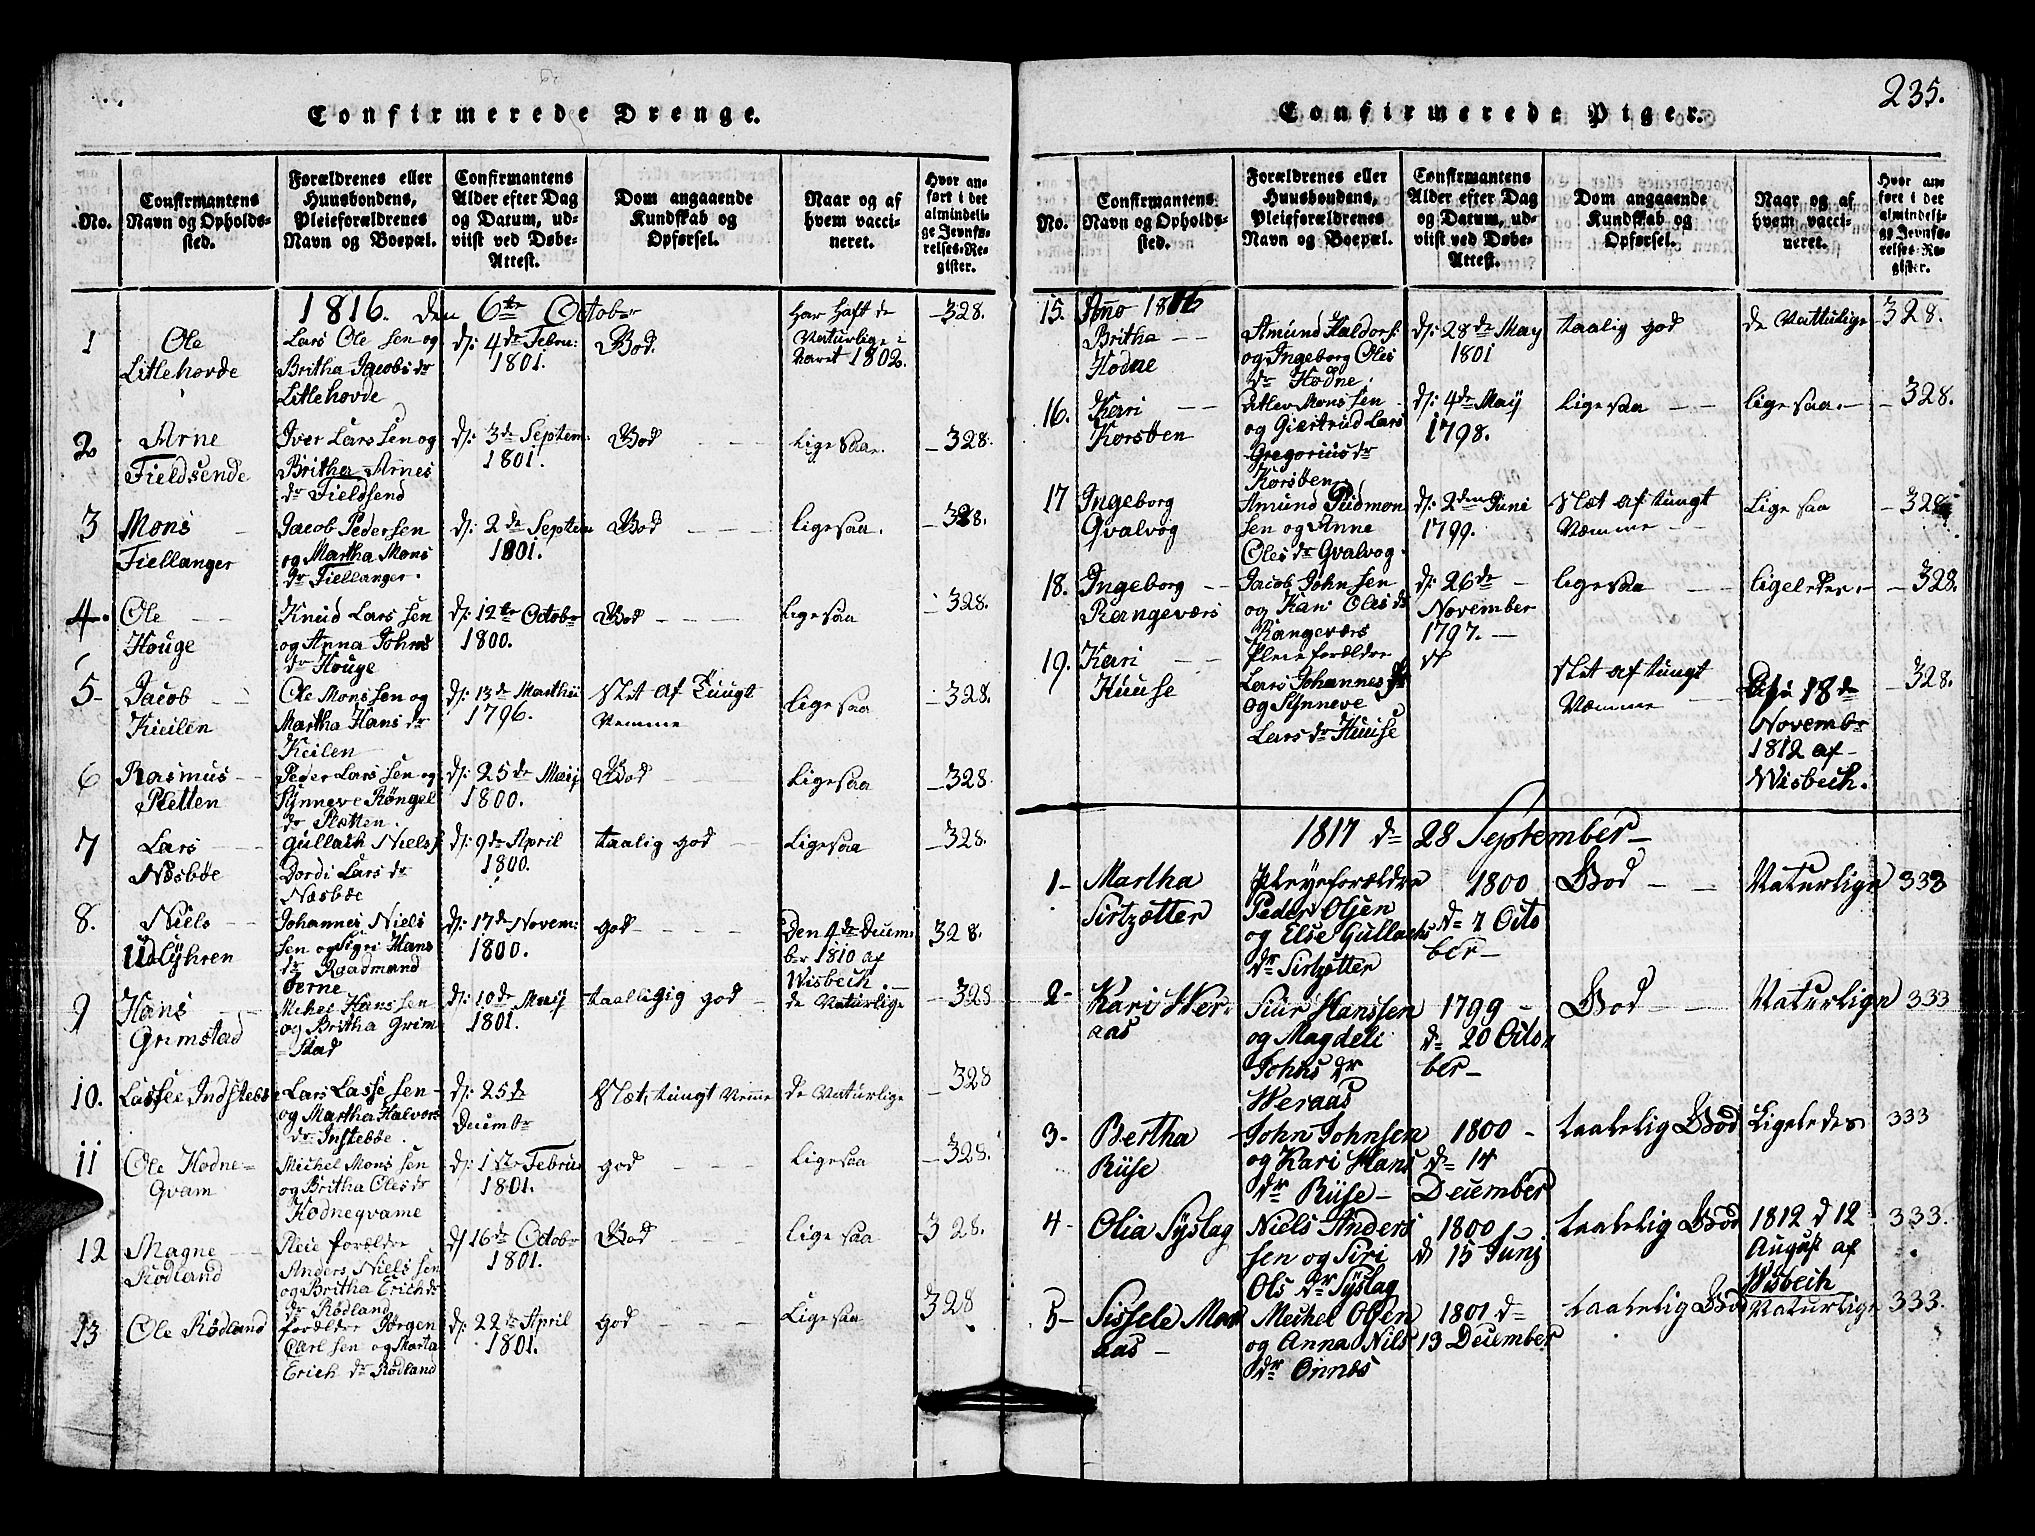 Confirmerede Drenge.
No.
Confirmantens
Navn og Opholds-
sted.
Forældrenes eller
Huusbondens,
Pleieforældrenes
Navn og Boepæl.
Confirmantens
Alder efter Dag
og Datum, ud-
viist ved Døbe-
Attest.
Dom angaaende
Kundskab og
Opførsel.
Naar og af
hvem vacci-
neret.
Hvor an-
ført i det
almindeli-
ge Jevnfø-
relses-Re-
gister.
1816. den 6te Octobr
1
Ole
Litlehovde
Lars Ole sen og
Britha Jacobs dr
Litlehovde
d: 4de Febru:
1801.
God.
Har Haft de
Naturlige i
Aaret 1802.
328.
2
Arne
Fieldsende
Iver Lars sen og
Britha Arnes
dr Fieldsend
d: 3de Septem:
1801.
God
ligesaa.
328.
3
Mons
Fiellanger
Jacob Pedersen
og Martha Mons
dr Fiellanger.
d: 2de Septem
1801.
God
ligesaa.
328.
4.
Ole
Houge
Knud Lars sen
og Anna Johns
dr Houge
d: 12te Octobr
1800.
God
ligesaa
328.
5
Jacob
Kieilen
Ole Mons sen og
Martha Hans dr
Keilen
d: 13de Marthii
1796.
Slet af Tungt
Nemme
ligesaa
328.
6
Rasmus
Pletten
Peder Lars sen og
Synneve Røngel
dr Pletten.
d: 25de Maij
1800.
God
ligesaa
328.
7
Lars
Næsbøe
Gullach Niels s
Dordi Lars dr
Næsbøe
d: 9de April
1800.
taalig god
ligesaa
328.
8.
Niels
Udlyhren
Johannes Niels
sen og Sigri Hans
dr Raadmand
d: 17de Novem:
1800.
god
Den 4de Decem:
ber 1810 af
Wisbech.
328.
9
Hans
Grimstad
Mihel Hans sen
og Britha Grim
stad
d: 10de Maij
1801.
taalligig god
de Naturlige
328
10.
Lasse Indstebøe
Lars Lasse sen
og Martha Halvors
dr Instebøe.
d: 25de
Decembr
Slæt, tungt Nemme
de Naturlige
328
11
Ole Hodne=
Qvam
Michel Mons sen
og Britha Oles dr
Hodneqvame
d: 1ste Febru
1801.
god
ligesaa
328.
12
Magne
Rødland
Pleie forældre
Anders Niels sen
og Britha Erich ds
dr Rødland
d 16de Octobr
1801.
God
lige saa
328.
13
Ole Rødland
forælder Jørgen
Carl sen og Marta
Erich dr Rødland
d: 22de April
1801.
god
Ligesaa
328
235.
Confirmerede Piger.
No.
Confirmantens
Navn og Opholds-
sted.
Forældrenes eller
Huusbondens,
Pleieforældrenes
Navn og Boepæl.
Confirmantens
Alder efter Dag
og Datum, ud-
viist ved Døbe-
Attest.
Dom angaaende
Kundskab og
Opførsel.
Naar og af
hvem vacci-
neret.
Hvor an-
ført i det
almindeli-
ge Jevnfø-
relses-Re-
gister.
15.
Ano 1816
Britha
Hodne
Amund Haldors.
og Ingeborg Oles
dr Hodne.
d: 28de May
1801
taalig god
de Natturlige
328.
16.
Kari
Korsøen
Ditlev Mons sen
og Giertrud Lars
Gregorius dr
Korsøen
d: 4de Maij
1798.
ligesaa
ligesaa
328.
17
Ingeborg
Qvalvog
Amund Gudmon
sen og Anne
Oles dr Qvalvog
d: 2den Juni
1799.
Slæt af tungt
Næmme
Lige saa
328
18.
Ingeborg
Rangeværs
Jacob John sen
og Kari Oles dr
Rangeværs
d: 26de
November
1797.
ligesaa
ligeledes
328.
19.
Kari
Huuse
Pleie forældre
Lars Johannes
og Synneve
Lars dr Huuse
Slet af tungt
Næmme
18de
Novembr
1812 af
Wisbech.
328.
1817 d= 28 September
1
Martha
Sirtzøtter
Pleyeforældre
Peder Olsen
og Else Gullachs
dr Sirtzøtter
1800
d= 7 Octo
ber
God
Naturlige
333
2
Kari Wer
aas
Siur Hanssen
og Magdeli
Johns dr
Weraas
1799
d= 20 Octo
ber
God
Naturlige
333
3
Bertha
Riise
John Johnsen
og Kari Hans
dr Riise
1800
d= 14
December
taalelig God
Ligeledes
333
4
Olia Syslag
Niels Anders
sen og Siri
Ols dr Syslag
1800
d 15 Junj
taalelig God
1812 d 12
August af
Wisbech
333.
5
Sissele Mor
aas
Michel Olsen
og Anna Nils
dr Onnes
1801 d=
13 December
taalelig God
Naturlige
333.